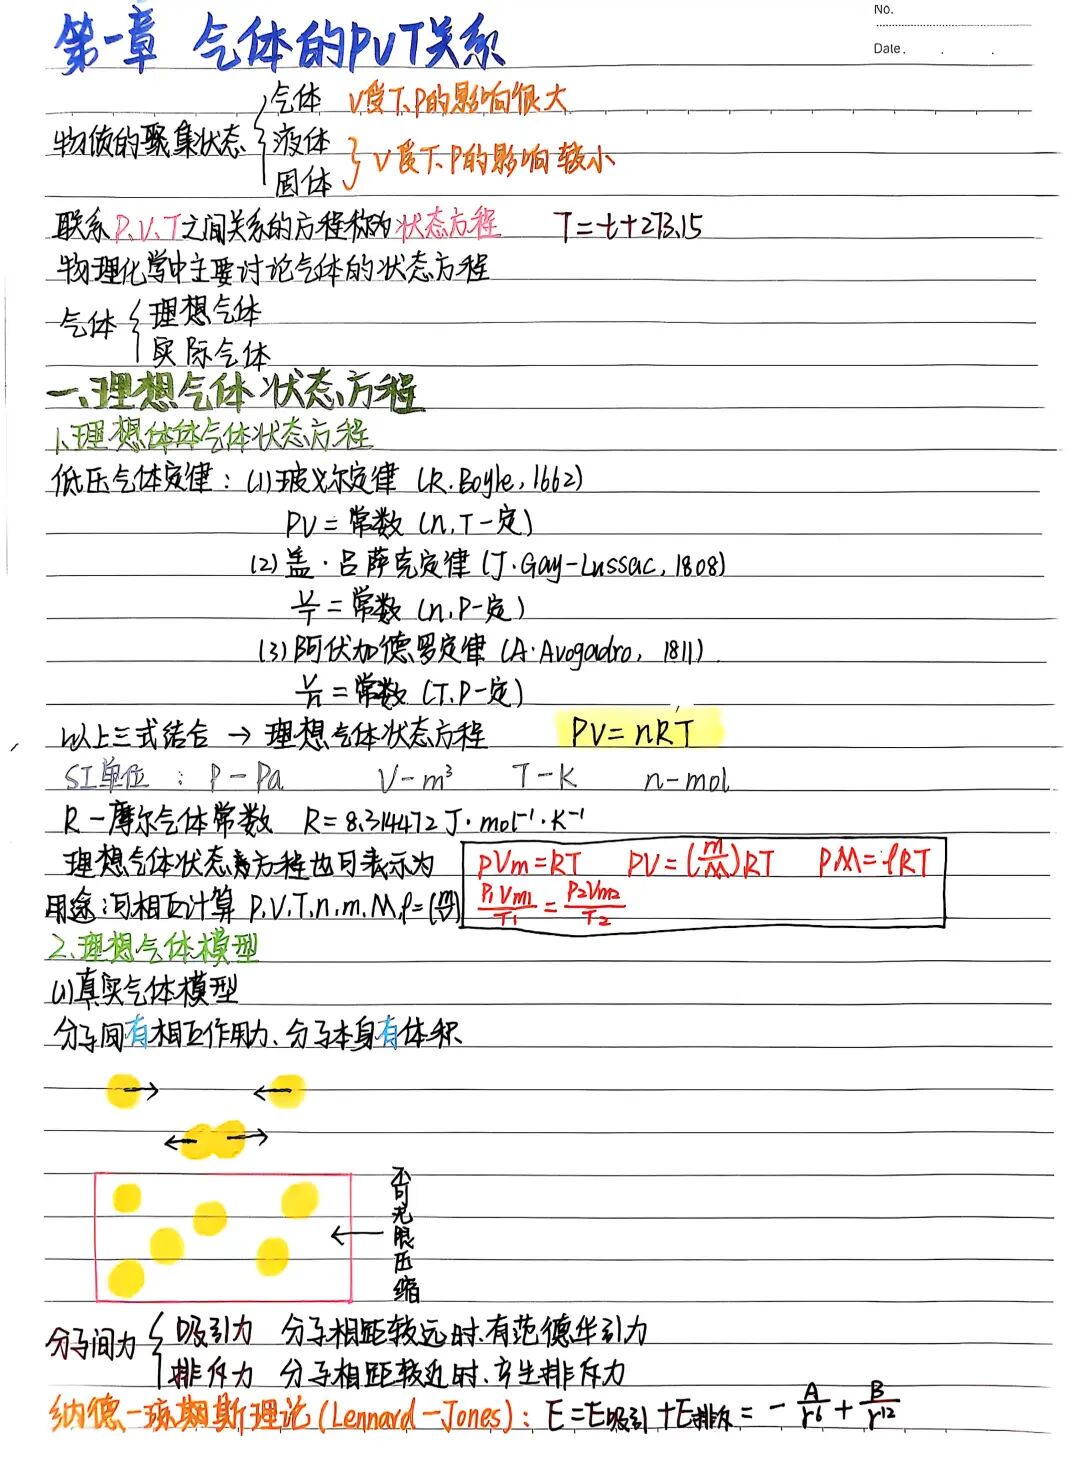 No.
Date. . .
第一章 气体的PVT关系
物质的聚集状态 { 气体 V受T、P的影响很大
液体
固体 } V受T、P的影响较小
联系P、V、T之间关系的方程称为状态方程 T=t+273.15
物理化学中主要讨论气体的状态方程
气体 { 理想气体
实际气体
一、理想气体状态方程
1.理想体体气体状态方程
低压气体定律：(1)玻义尔定律 (R.Boyle,1662)
PV=常数 (n,T一定)
(2)盖·吕萨克定律 (J·Gay-Lussac,1808)
V/T=常数 (n,P一定)
(3)阿伏加德罗定律 (A·Avogadro, 1811)
V/n=常数 (T、P一定)
以上三式结合 → 理想气体状态方程 PV=nRT
SI单位 : P-Pa V-m³ T-K n-mol
R-摩尔气体常数 R=8.314472 J·mol⁻¹·K⁻¹
理想气体状态方程也可表示为 PVm=RT PV=(m/M)RT PM=ρRT
用途：可相互计算 P、V、T、n、m、M、ρ=(m/V) P₁Vm₁/T₁=P₂Vm₂/T₂
2.理想气体模型
(1)真实气体模型
分子间有相互作用力、分子本身有体积
不可无限压缩
分子间力 { 吸引力 分子相距较远时、有范德华引力
排斥力 分子相距较近时、产生排斥力
纳德-琼斯理论(Lennard-Jones)：E=E吸引+E排斥=-A/r⁶+B/r¹²